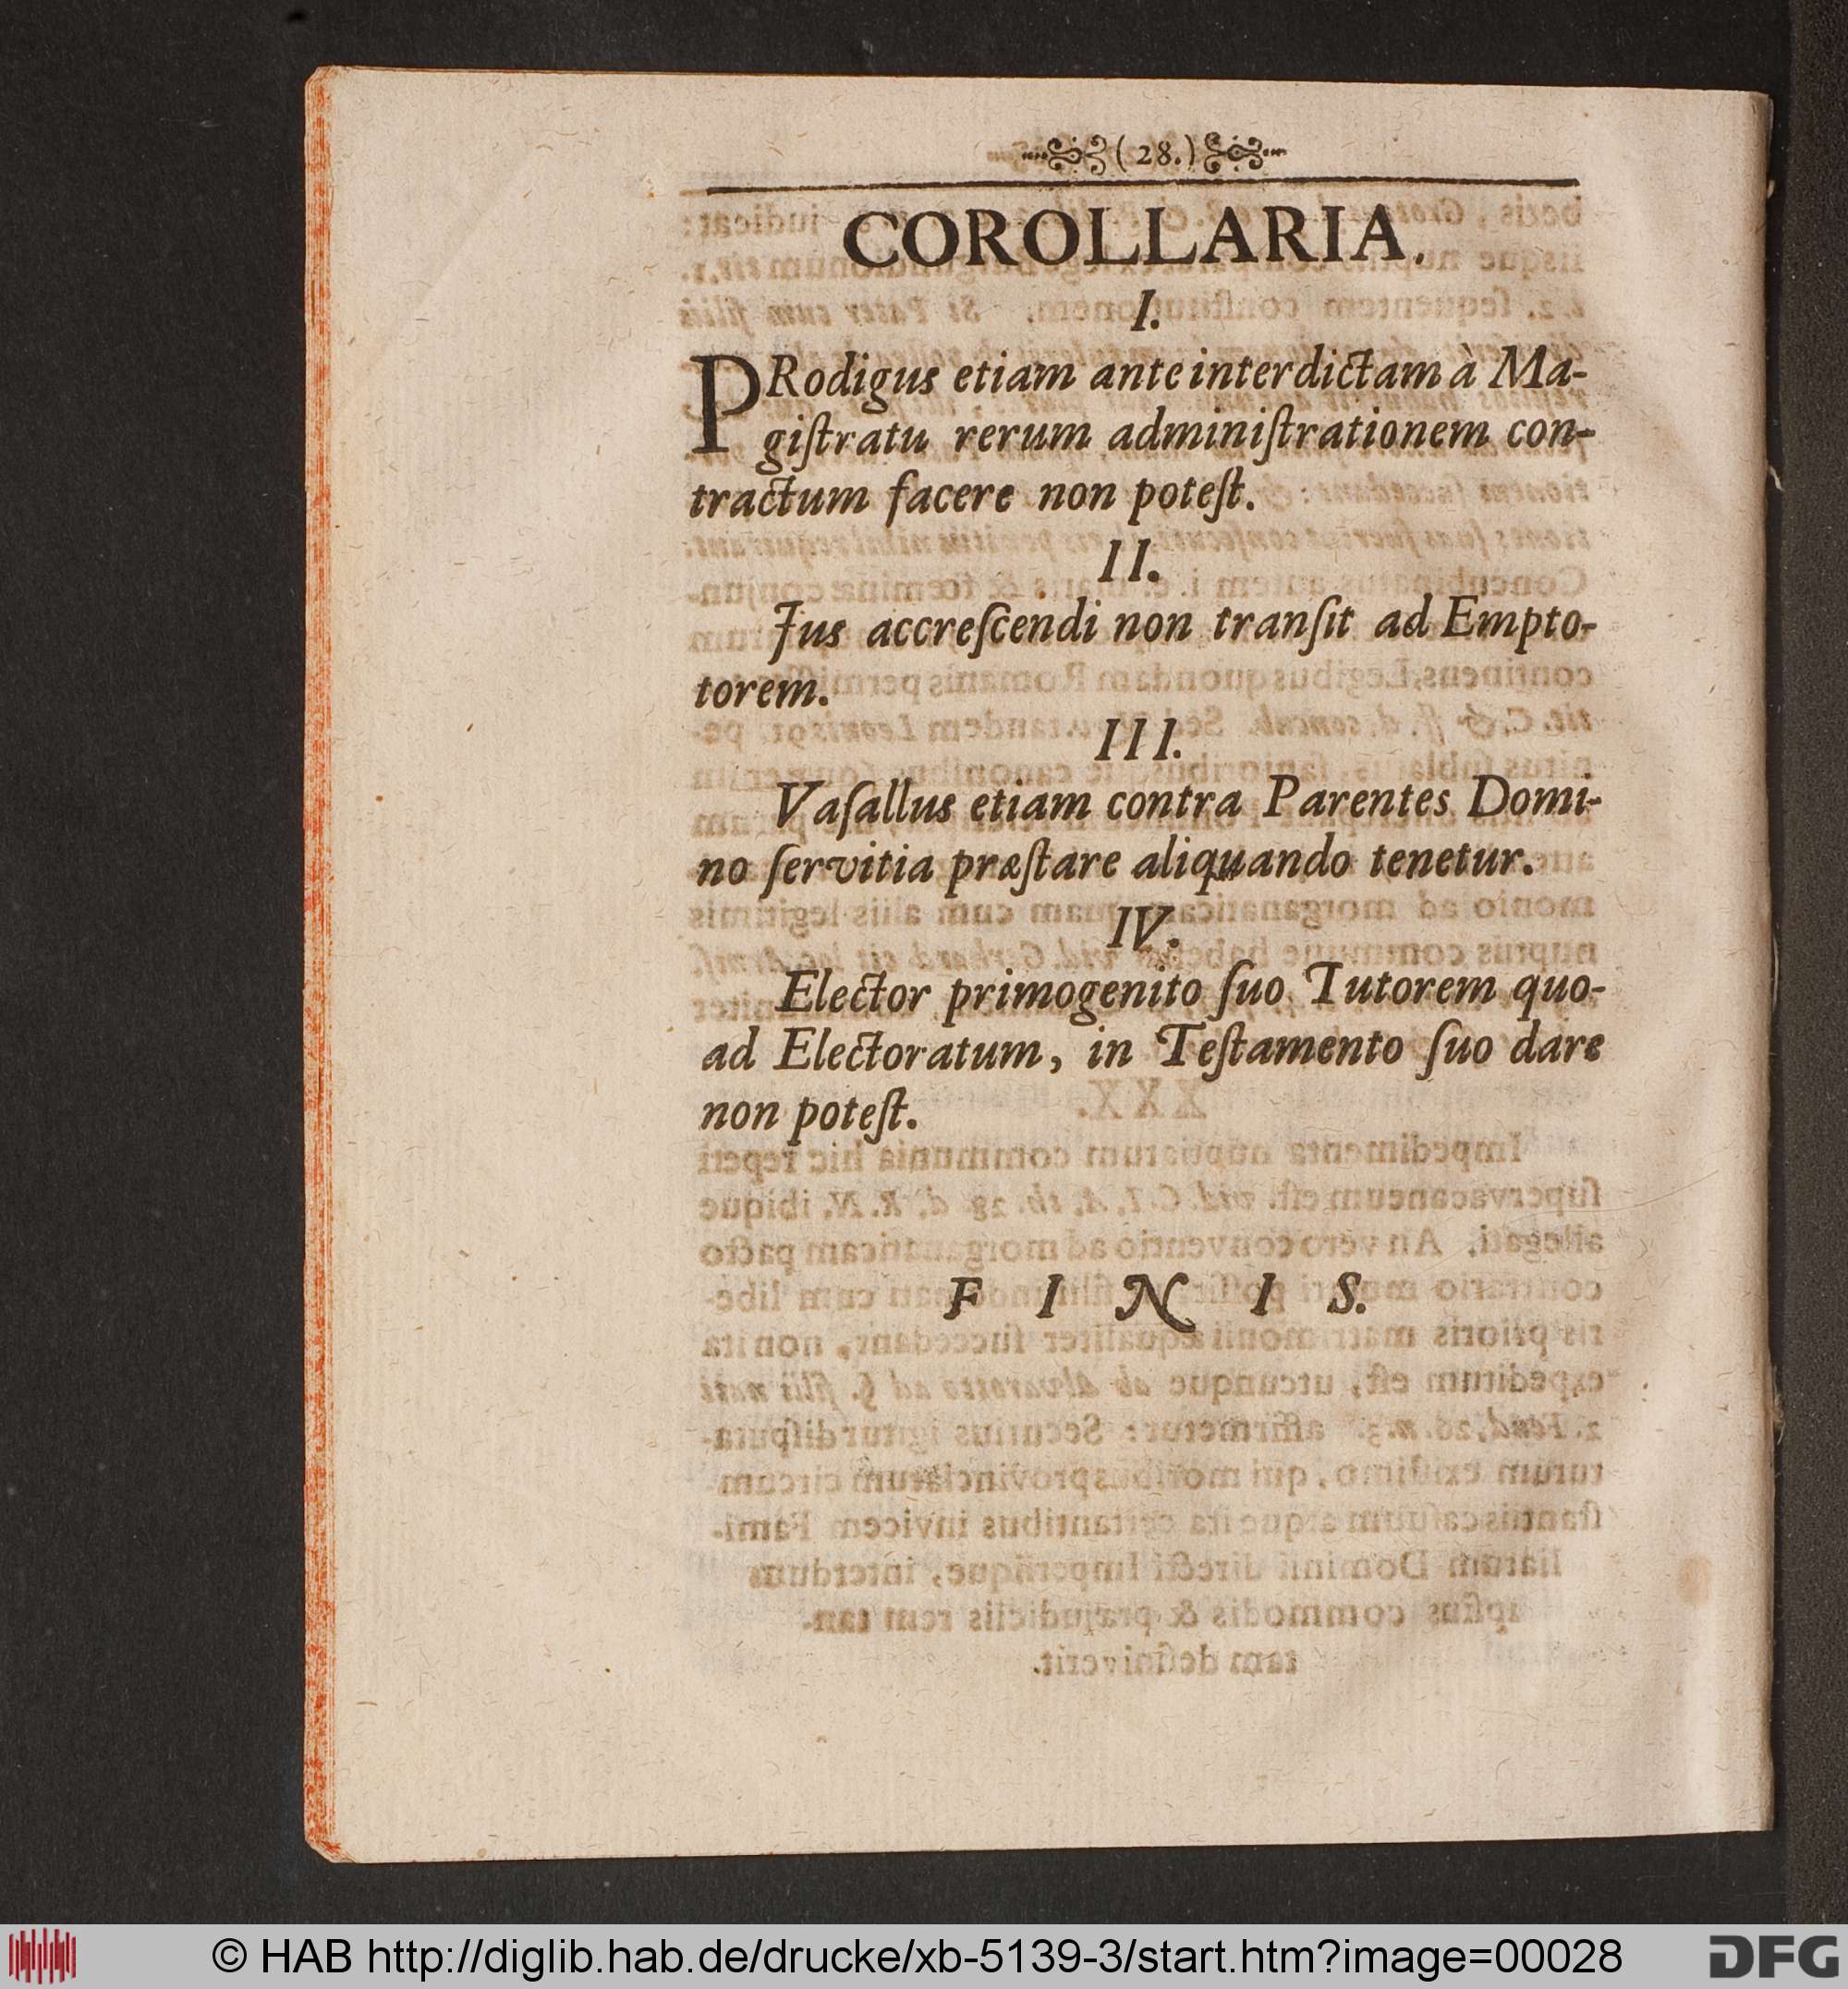 ( 28. )
COROLLARIA.
I.
PRodigus etiam ante interdictam à Ma-
giſtratu rerum adminiſtrationem con-
tractum facere non poteſt.
II.
Jus accreſcendi non tranſit ad Empto-
torem.
III.
Vaſallus etiam contra Parentes Domi-
no ſervitia præſtare aliquando tenetur.
IV.
Elector primogenito ſuo Tutorem quo-
ad Electoratum, in Teſtamento ſuo dare
non poteſt.
F I N I S.
© HAB http://diglib.hab.de/drucke/xb-5139-3/start.htm?image=00028
DFG